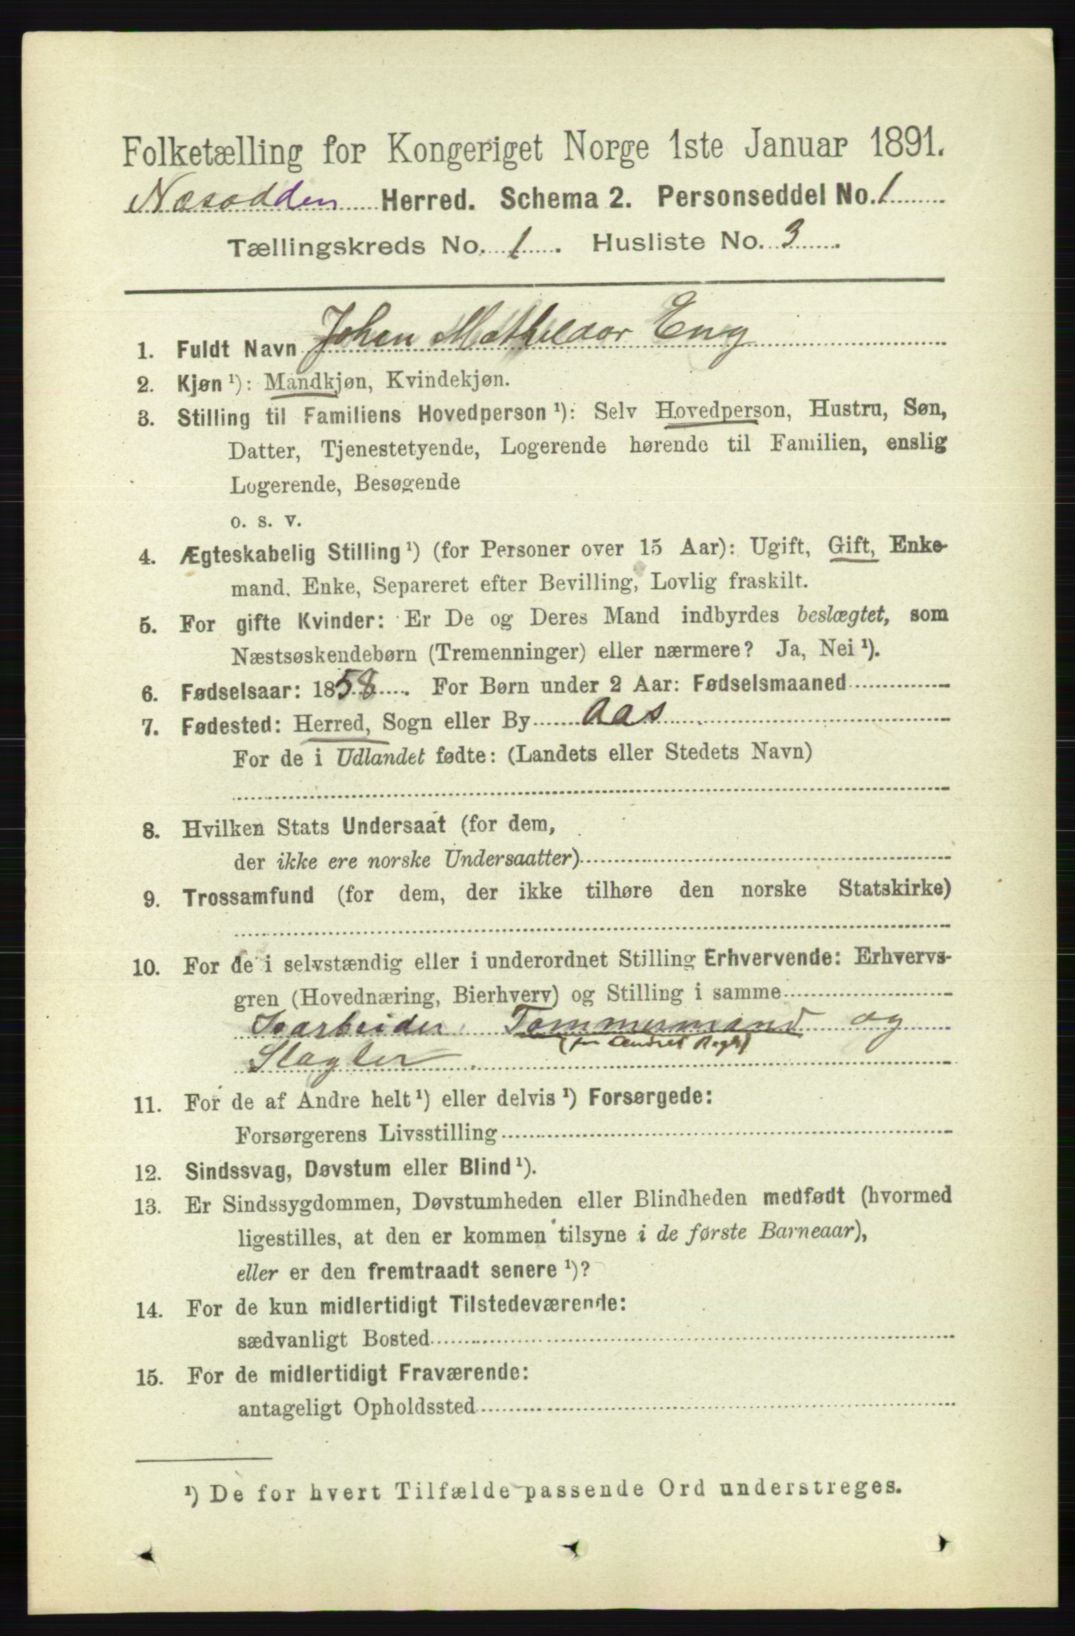 Folketælling for Kongeriget Norge 1ste Januar 1891.
Næsodden Herred. Schema 2. Personseddel No. 1
Tællingskreds No. 1. Husliste No. 3.
1. Fuldt Navn Johan Eng
2. Kjøn ¹): Mandkjøn, Kvindekjøn.
3. Stilling til Familiens Hovedperson ¹): Selv Hovedperson, Hustru, Søn,
Datter, Tjenestetyende, Logerende hørende til Familien, enslig
Logerende, Besøgende
o. s. v.
4. Ægteskabelig Stilling ¹) (for Personer over 15 Aar): Ugift, Gift, Enke-
mand, Enke, Separeret efter Bevilling, Lovlig fraskilt.
5. For gifte Kvinder: Er De og Deres Mand indbyrdes beslægtet, som
Næstsøskendebørn (Tremenninger) eller nærmere? Ja, Nei ¹).
6. Fødselsaar: 1858. For Børn under 2 Aar: Fødselsmaaned
7. Fødested: Herred, Sogn eller By Aas
For de i Udlandet fødte: (Landets eller Stedets Navn)
8. Hvilken Stats Undersaat (for dem,
der ikke ere norske Undersaatter)
9. Trossamfund (for dem, der ikke tilhøre den norske Statskirke)
10. For de i selvstændig eller i underordnet Stilling Erhvervende: Erhvervs-
gren (Hovednæring, Bierhverv) og Stilling i samme
Isarbeider Tømmermand og
Slagter
11. For de af Andre helt ¹) eller delvis ¹) Forsørgede:
Forsørgerens Livsstilling
12. Sindssvag, Døvstum eller Blind ¹).
13. Er Sindssygdommen, Døvstumheden eller Blindheden medfødt (hvormed
ligestilles, at den er kommen tilsyne i de første Barneaar),
eller er den fremtraadt senere ¹)?
14. For de kun midlertidigt Tilstedeværende:
sædvanligt Bosted
15. For de midlertidigt Fraværende:
antageligt Opholdssted
¹) De for hvert Tilfælde passende Ord understreges.